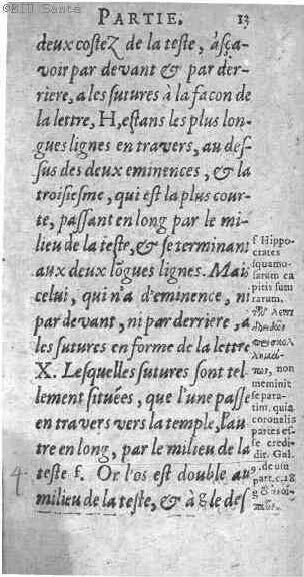 ©BIU Santé
PARTIE. 13
deux costeZ de la teste, àsça-
voir par devant & par der-
riere, a les sutures à la facon de
la lettre, H, estans les plus lon-
gues lignes en travers, au des-
sus des deux eminences, & la
troisiesme, qui est la plus cour-
te, passant en long par le mi-
lieu de la teste, & se terminant
aux deux lõgues lignes. Mais
celui, qui n'a d'eminence, ni
par devant, ni par derriere, a
les sutures en forme de la lettre
X. Lesquelles sutures sont tel-
lement situées, que l'une passe
en travers vers la temple, l'au-
tre en long, par le milieu de la
teste f. Or l'os est double au
milieu de la teste, & à & le des
f Hippo-
crates
squamo-
sarum ca
pitis sum
rarum,
non
meminit
separa-
tim, quia
coronalis
partes es-
se credi-
dit. Gal.
9. de usu
part. c. 18
4